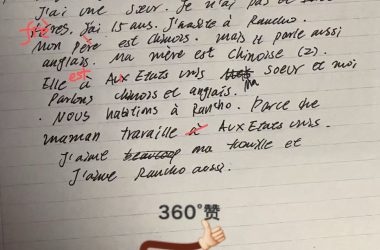 J'ai une sœur. Je n'ai pas de
frères. J'ai 15 ans. J'habite à Rancho.
Mon père est chinois. mais il parle aussi
anglais. Ma mère est chinoise (2).
Elle est à Aux Etats unis soeur et moi
Parlons chinois et anglais. Ma
. Nous habitons à Rancho. Parce que
maman travaille à Aux Etats unis.
J'aime beaucoup ma famille et
J'aime Rancho aussi.
360°赞